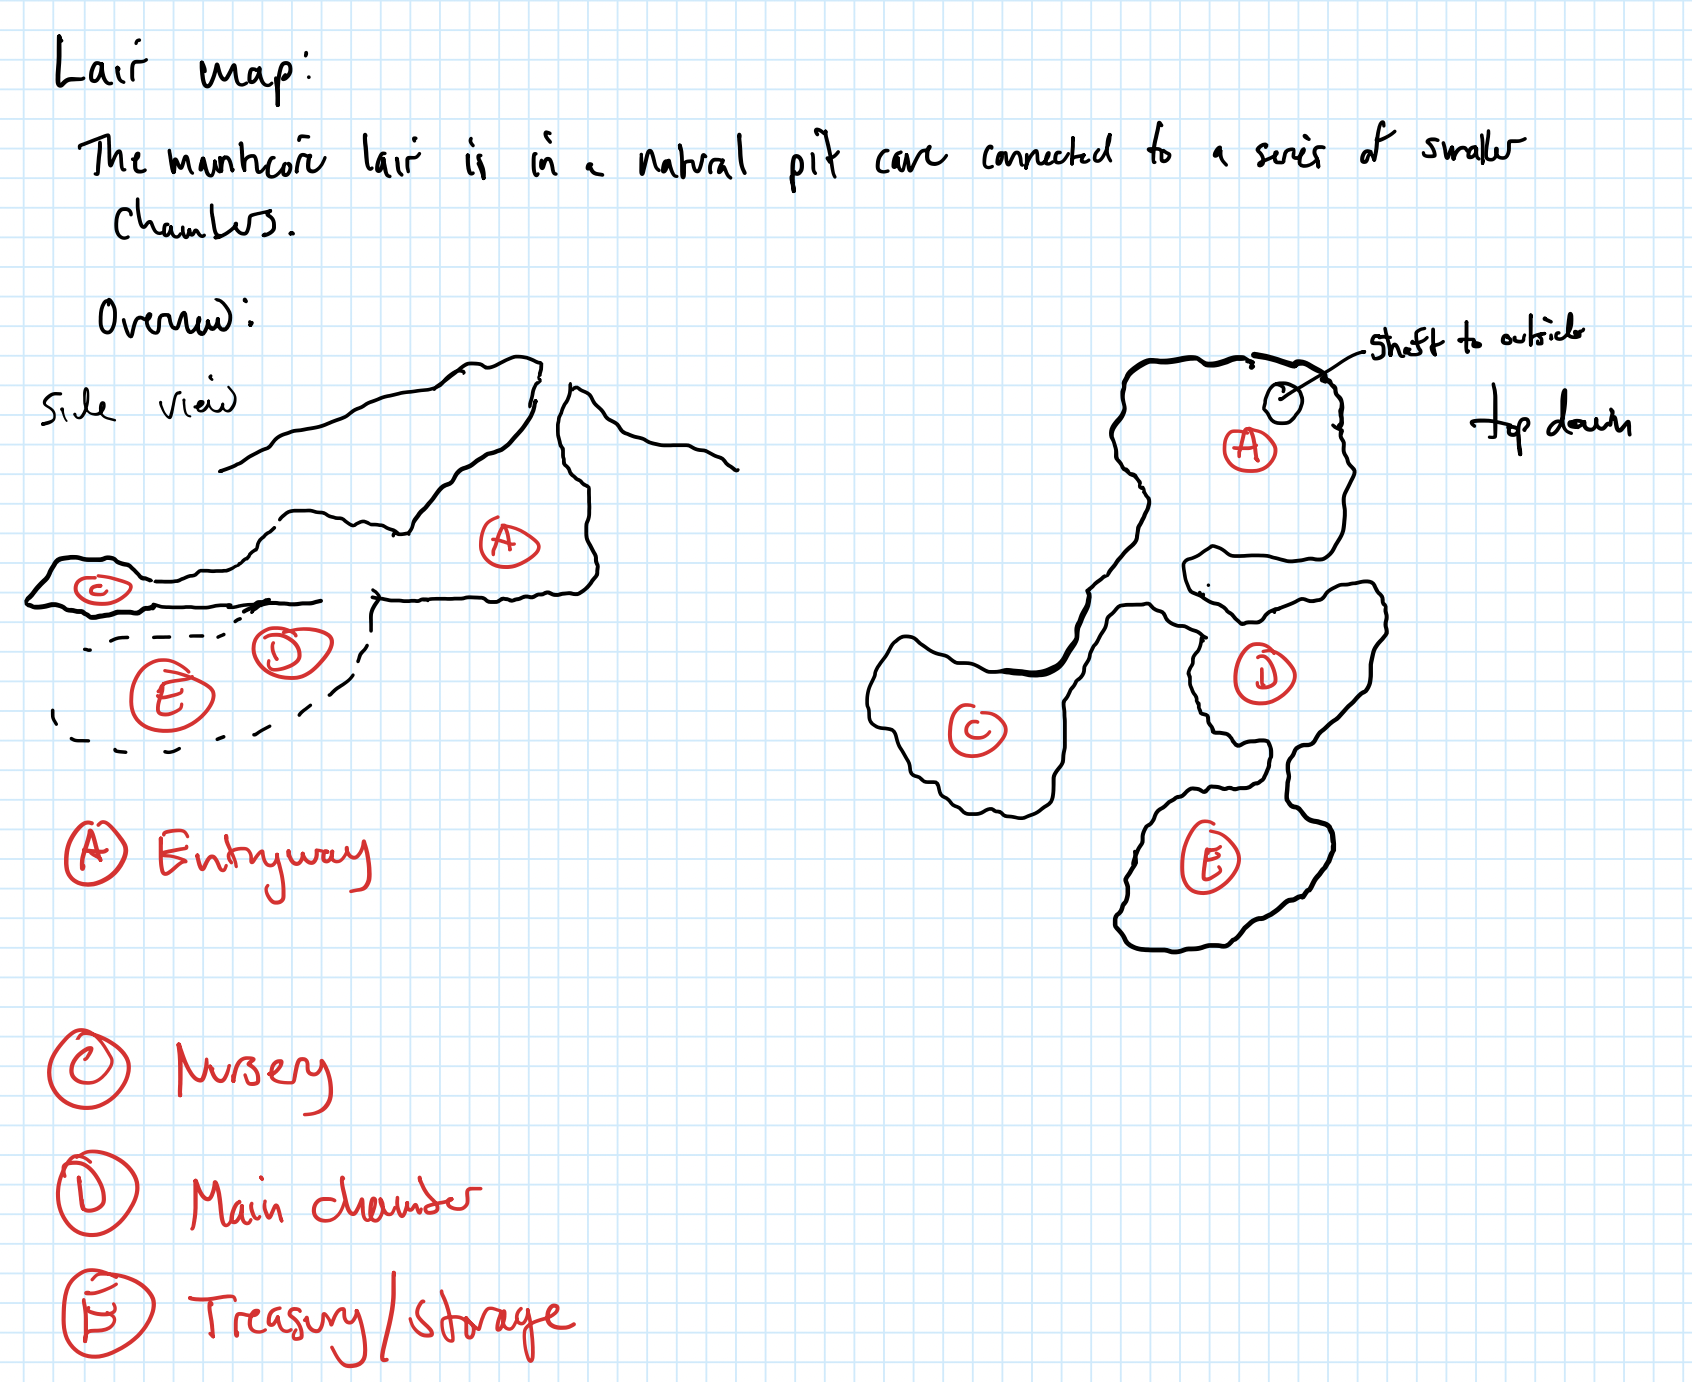 Lair map:
The manticore lair is in a natural pit cave connected to a series of smaller
chambers.
Overview:
side view
C
A
D
E
shaft to outside
top down
A
D
C
E
A Entryway
C Nursery
D Main chamber
E Treasury/storage